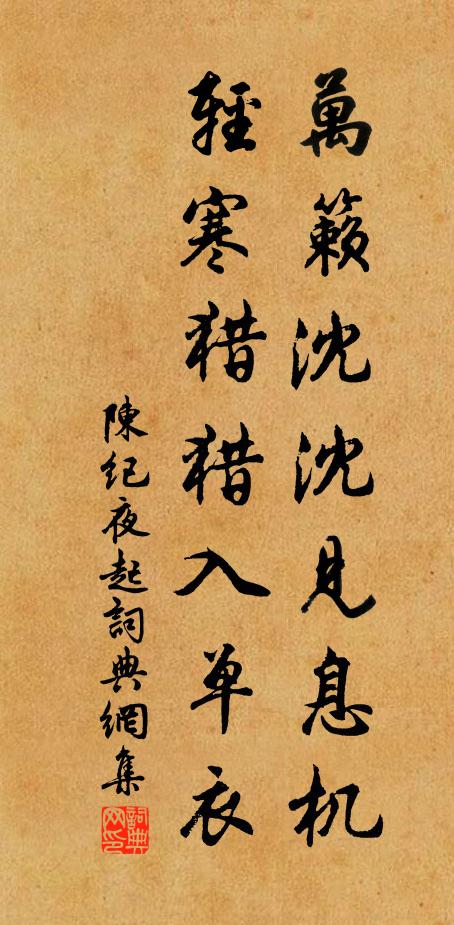 萬籟沈沈見息机
輕寒猎猎入单衣
陳纪夜起詞典網集
詞典网印